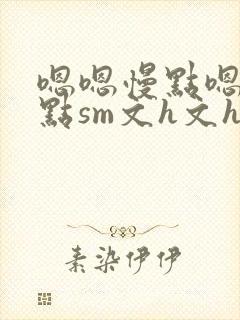 嗯嗯慢點嗯
點sm文h文h
素染伊伊